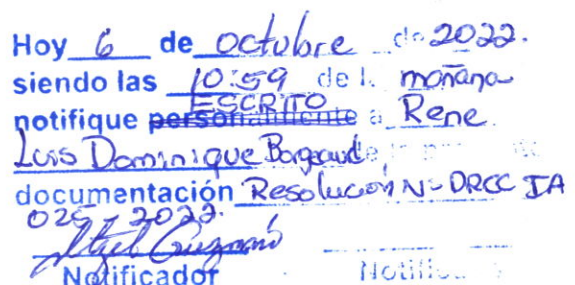 Hoy 6 de octubre de 2022.
siendo las 10:59 de la mañana
notifique personalmente ESCRITO a Rene
Luis Dominique de la
documentación Resolución N- DRCC IA
025-2022.
Itzel Guzmán
Notificador